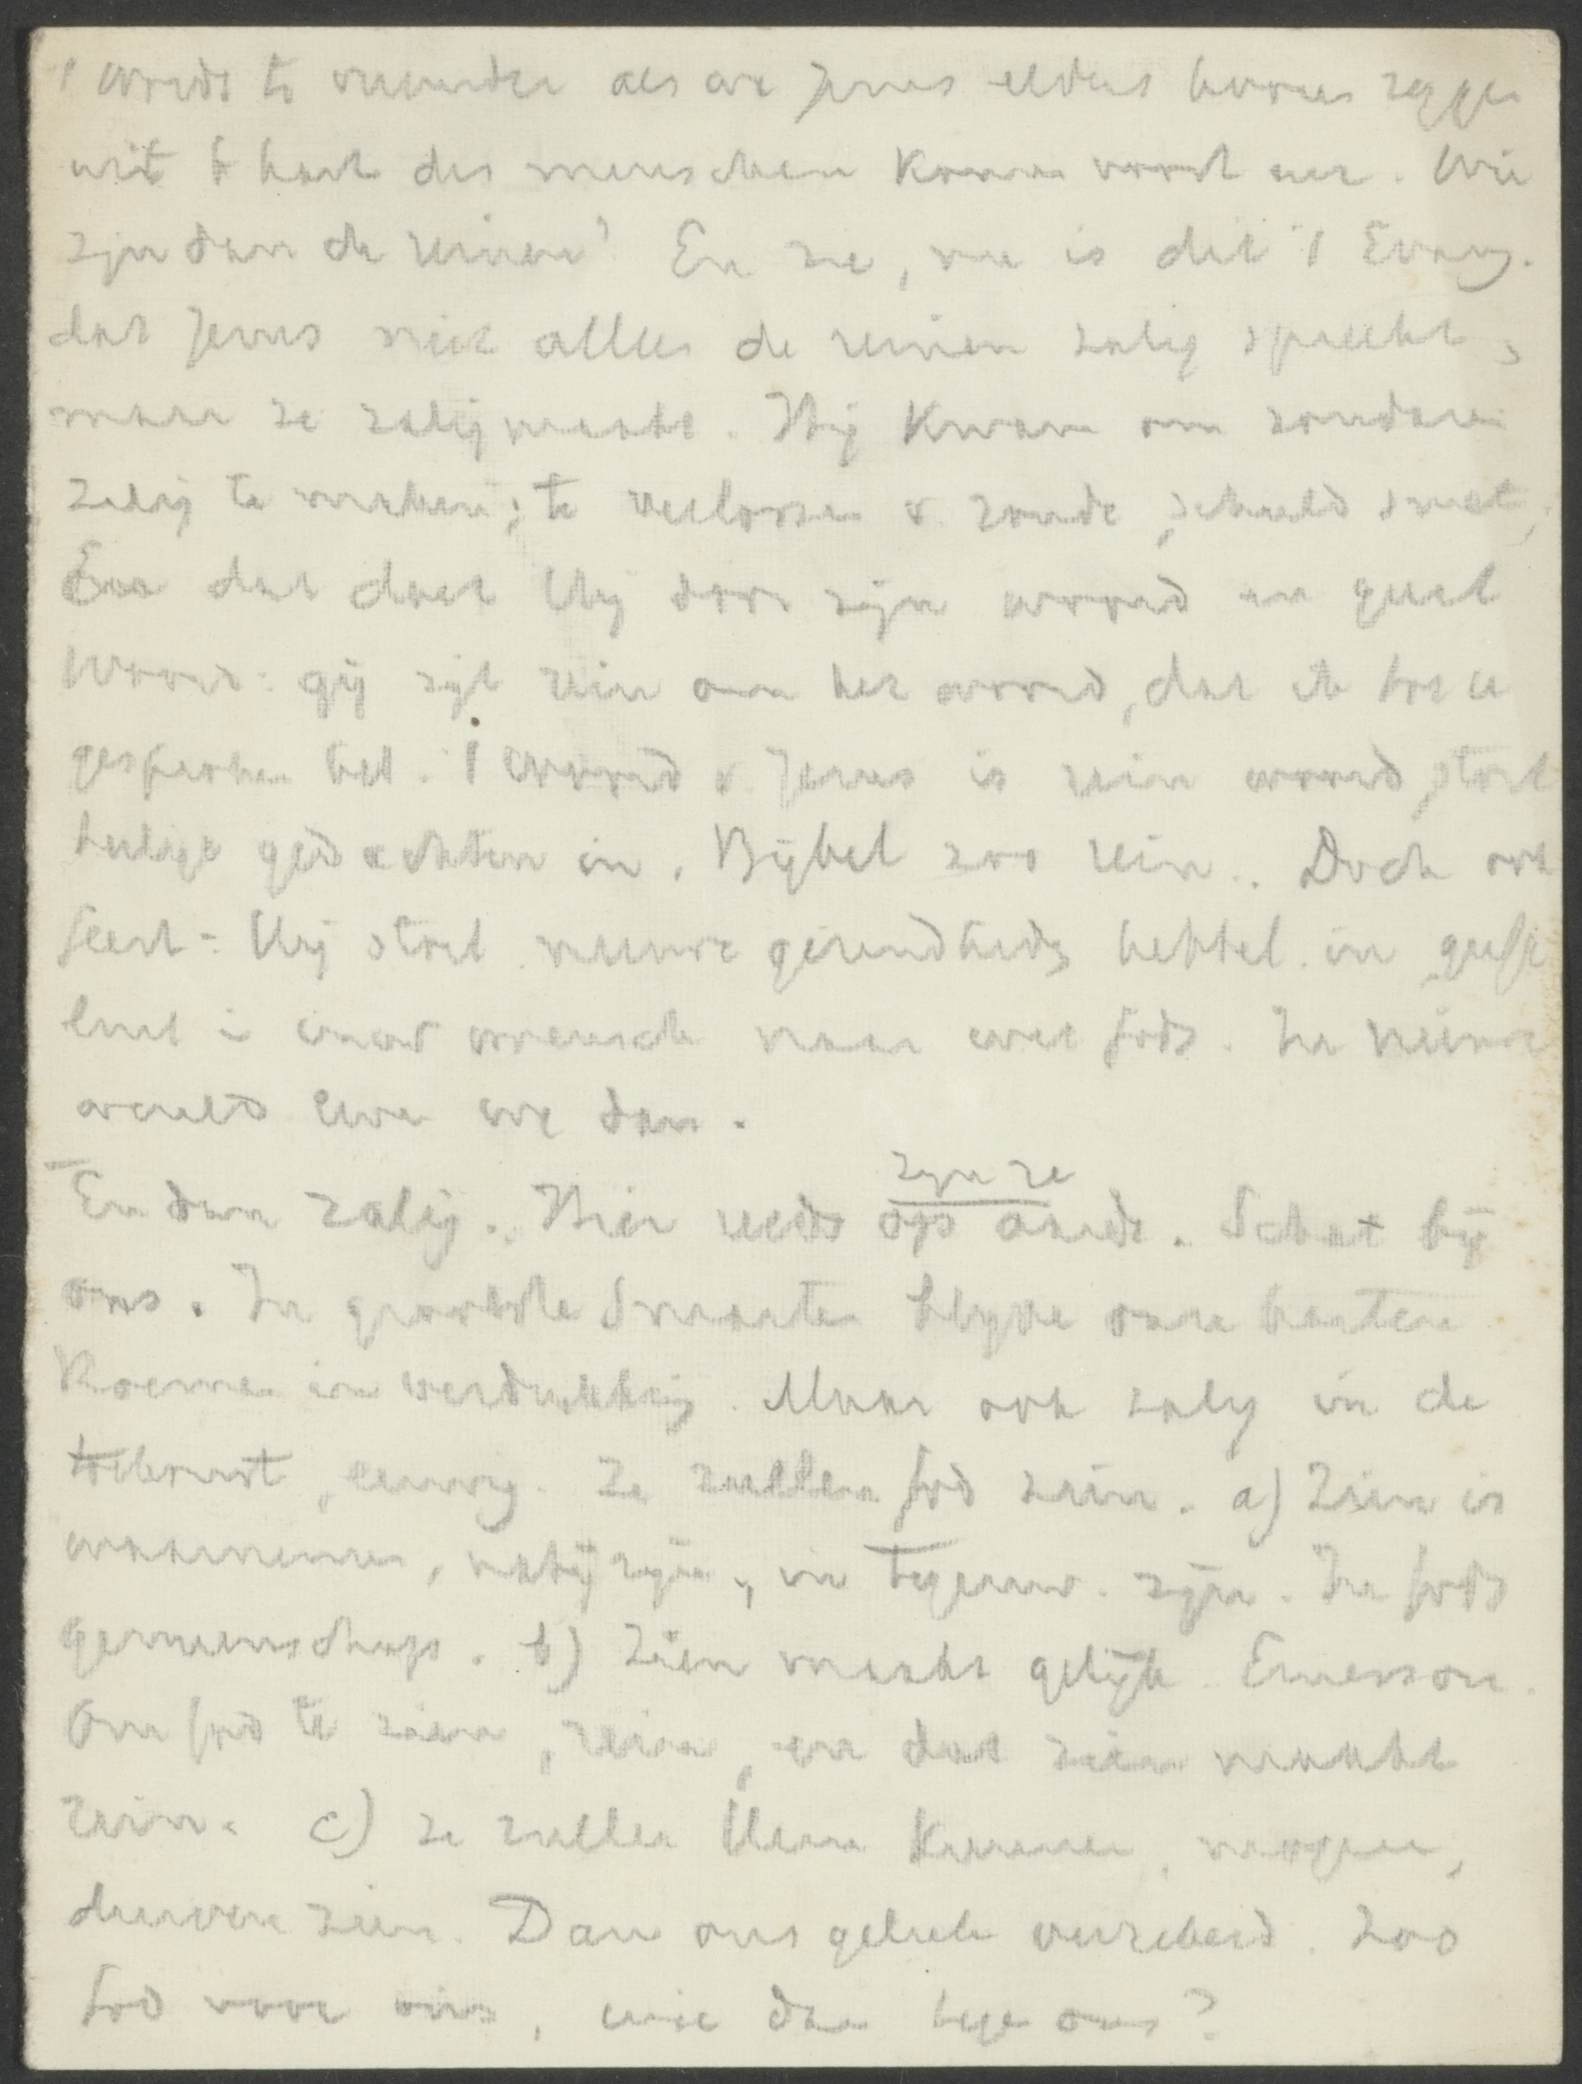 't wordt te wonder als we Jezus elders hooren zeggen
uit 't hart des menschen komen voort enz. Wie
zijn dan de reinen? En zie, nu is dit 't Evang.
dat Jezus niet alleen de reinen zalig spreekt,
maar ze zalig maakt. Hij kwam om zondaren
zalig te maken; te verlossen v. zonde, schuld smet,
En dat doet Hij door zijn woord en geest
Woord: gij zijt rein om het woord, dat ik tot u
gesproken heb. 't Woord v. Jezus is rein woord, stort
heilige gedachten in. Bijbel zoo rein. Doch ook
Geest: Hij stort nieuwe gerundheids in
lust i inw mensch naar wet Gods. In nieuwe
wereld leven we dan.
En dan zalig. Hier reeds op aarde. Schat bij
zijn ze
ons. In grootste smarten blijven onze harten
Roemen in verdrukking. Maar ook zalig in de
toekomst, eeuwig. Ze zullen God zien. a) Zien is
waarnemen, nabij zijn, in tegenw. zijn. In Gods
gemeenschap. b) Zien maakt gelijk. Emerson.
Om God te zien, rein, en dat zien maakt
rein. c) ze zullen Hem kunnen, mogen,
durven zien. Dan ons geluk verzekerd. Zoo
God voor ons, wie dan tegen ons?